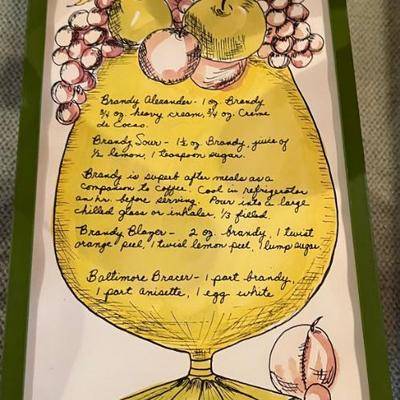 Brandy Alexander - 1 oz. Brandy
3/4 oz. heavy cream, 3/4 oz. Creme
de Cacao.
Brandy Sour - 1½ oz. Brandy, juice of
½ lemon, 1 teaspoon sugar.
Brandy is superb after meals as a
companion to coffee. Cool in refrigerator
an hr. before serving. Pour into a large
chilled glass or inhaler, 1/3 filled.
Brandy Blazer - 2 oz. brandy, 1 twist
orange peel, 1 twist lemon peel, 1 lump sugar
Baltimore Bracer - 1 part brandy,
1 part anisette, 1 egg white